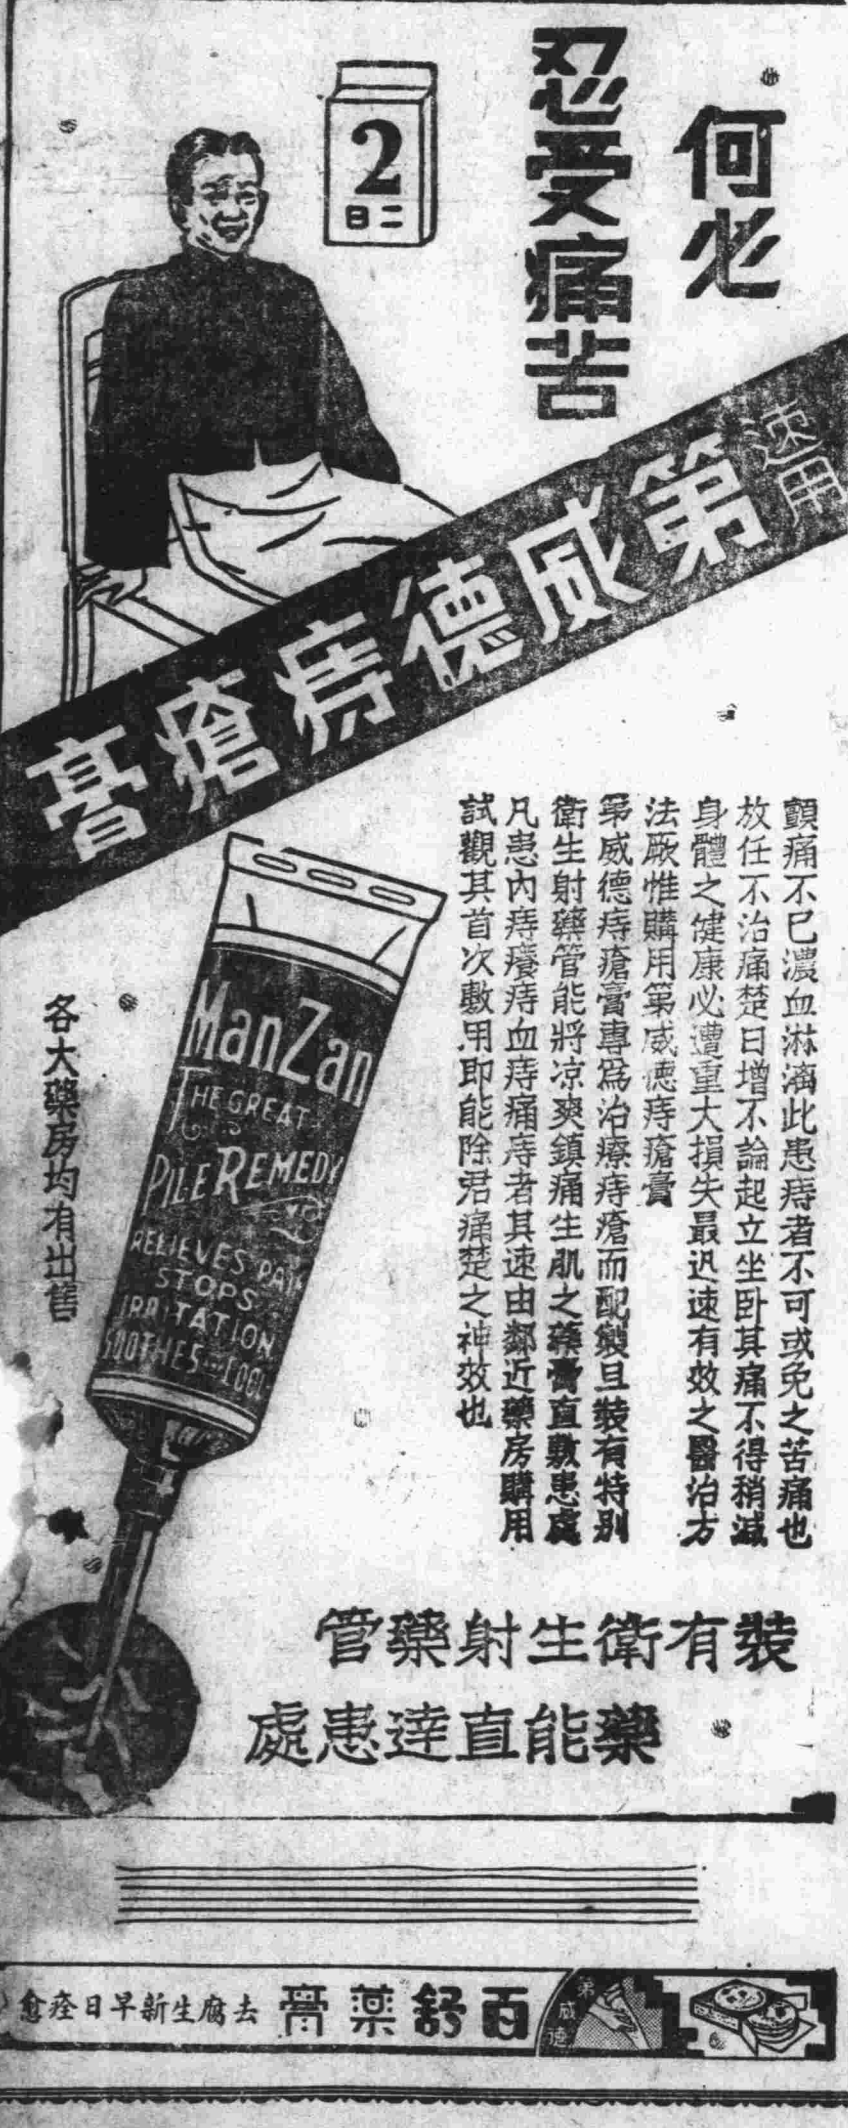 何必
忍受痛苦
2
二日
速用
第威德痔瘡膏
顫痛不已濃血淋漓此患痔者不可或免之苦痛也
放任不治痛楚日增不論起立坐卧其痛不得稍減
身體之健康必遭重大損失最迅速有效之醫治方
法厥惟購用第威德痔瘡膏
第威德痔瘡膏專為治療痔瘡而配製且裝有特別
衛生射藥管能將凉爽鎮痛生肌之藥膏直敷患處
凡患內痔癢痔血痔痛痔者其速由鄰近藥房購用
試觀其首次敷用即能除君痛楚之神效也
ManZan
THE GREAT
PILE REMEDY
RELIEVES PAIN
STOPS
IRRITATION
SOOTHES COOL
各大藥房均有出售
裝有衛生射藥管
藥能直達患處
第威德
百舒藥膏
去腐生新早日痊愈